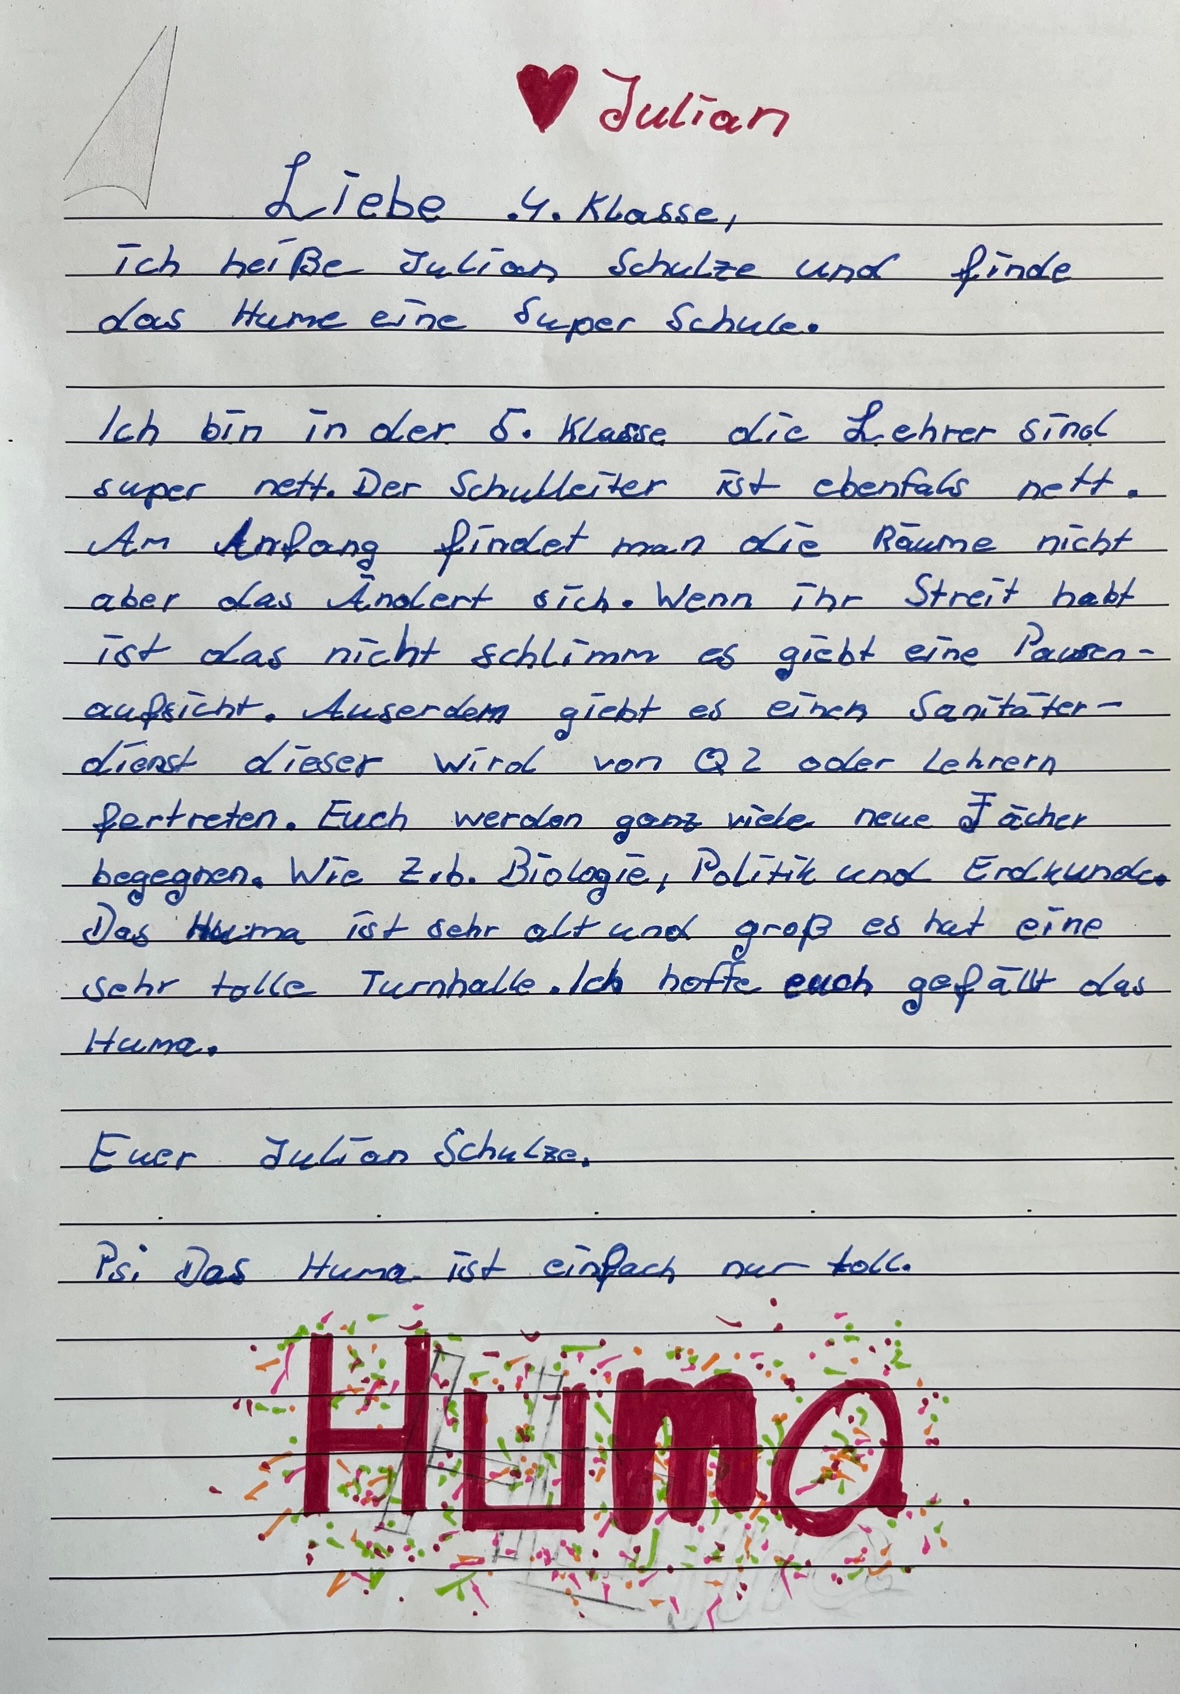 Julian
Liebe 4. Klasse,
ich heiße Julian Schulze und finde
das Hume eine Super Schule.
Ich bin in der 5. Klasse die Lehrer sind
super nett. Der Schulleiter ist ebenfals nett.
Am Anfang findet man die Räume nicht
aber das Ändert sich. Wenn ihr Streit habt
ist das nicht schlimm es giebt eine Pausen-
aufsicht. Auserdem giebt es einen Sanitäter-
dienst dieser wird von Q2 oder Lehrern
fertreten. Euch werden ganz viele neue Fächer
begegnen. Wie z.b. Biologie, Politik und Erdkunde.
Das Huma ist sehr alt und groß es hat eine
sehr tolle Turnhalle. Ich hoffe euch gefällt das
Huma.
Euer Julian Schulze.
Ps: Das Huma ist einfach nur toll.
Huma